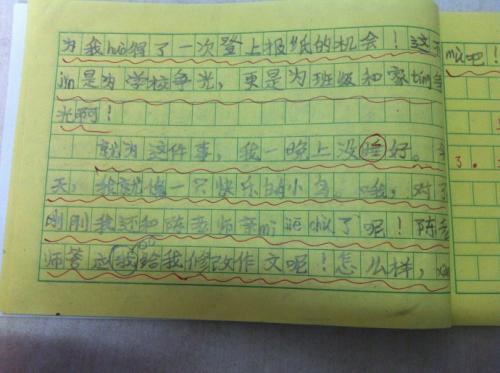 为我huò得了一次登上报纸的机会！这不
jǐn是为学校争光，更是为班级和家tíng争
光啊！
就为这件事，我一晚上没睡好。今
天，我就像一只快乐的小鸟。哦，对了
刚刚我还和陈老师亲mì jiē chù了呢！陈老
师答应我给我修改作文呢！怎么样，
mù吧！
3.